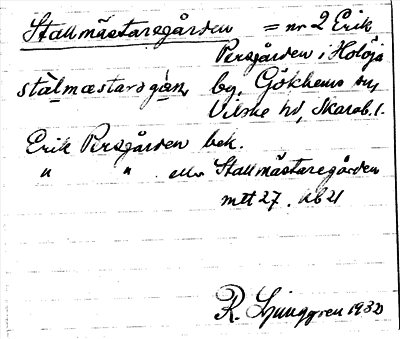 Stallmästaregården = nr 2 Erik
Persgården i Holöja
stàlmæstaragá̀n, by, Gökhems sn,
Vilske hd, Skarab. l.
Erik Persgården bek.
" " eller Stallmästaregården
mtt 27. ub 21
R. Ljunggren 1932